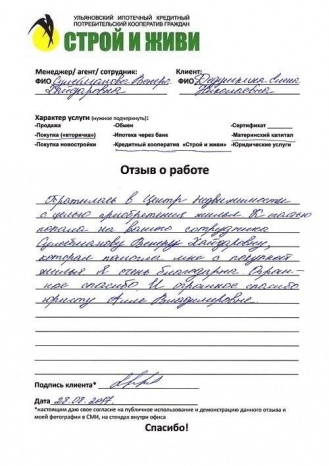 УЛЬЯНОВСКИЙ ИПОТЕЧНЫЙ КРЕДИТНЫЙ
ПОТРЕБИТЕЛЬСКИЙ КООПЕРАТИВ ГРАЖДАН
СТРОЙ И ЖИВИ
Менеджер/ агент/ сотрудник: Клиент:
ФИО Сулейманова Венера ФИО
Хайдаровна Николаевна
Характер услуги (нужное подчеркнуть):
-Продажа -Обмен -Сертификат
-Покупка (вторичка) -Ипотека через банк -Материнский капитал
-Покупка новостройки -Кредитный кооператив «Строй и живи» -Юридические услуги
Отзыв о работе
Обратилась в Центр Недвижимости
с целью приобретения жилья. К счастью
попала на вашего сотрудника
Сулейманову Венеру Хайдаровну,
которая помогла мне в покупкой
жилья. Я очень благодарна. Огром-
ное спасибо. И огромное спасибо
юристу Анне Владимировне.
Подпись клиента*
Дата 28.08.2017.
*настоящим даю свое согласие на публичное использование и демонстрацию данного отзыва и
моей фотографии в СМИ, на стендах внутри офиса
Спасибо!